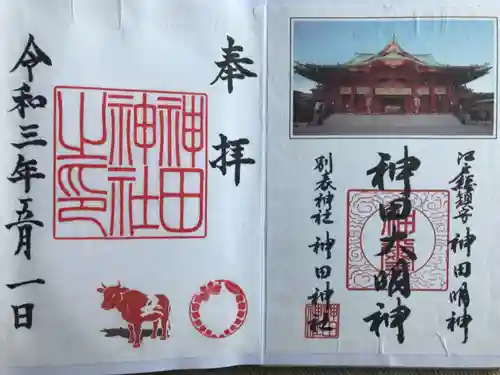 江戸総鎮守 神田明神
神田大明神
別表神社 神田神社
奉拝
神田
神社
之印
令和三年五月一日